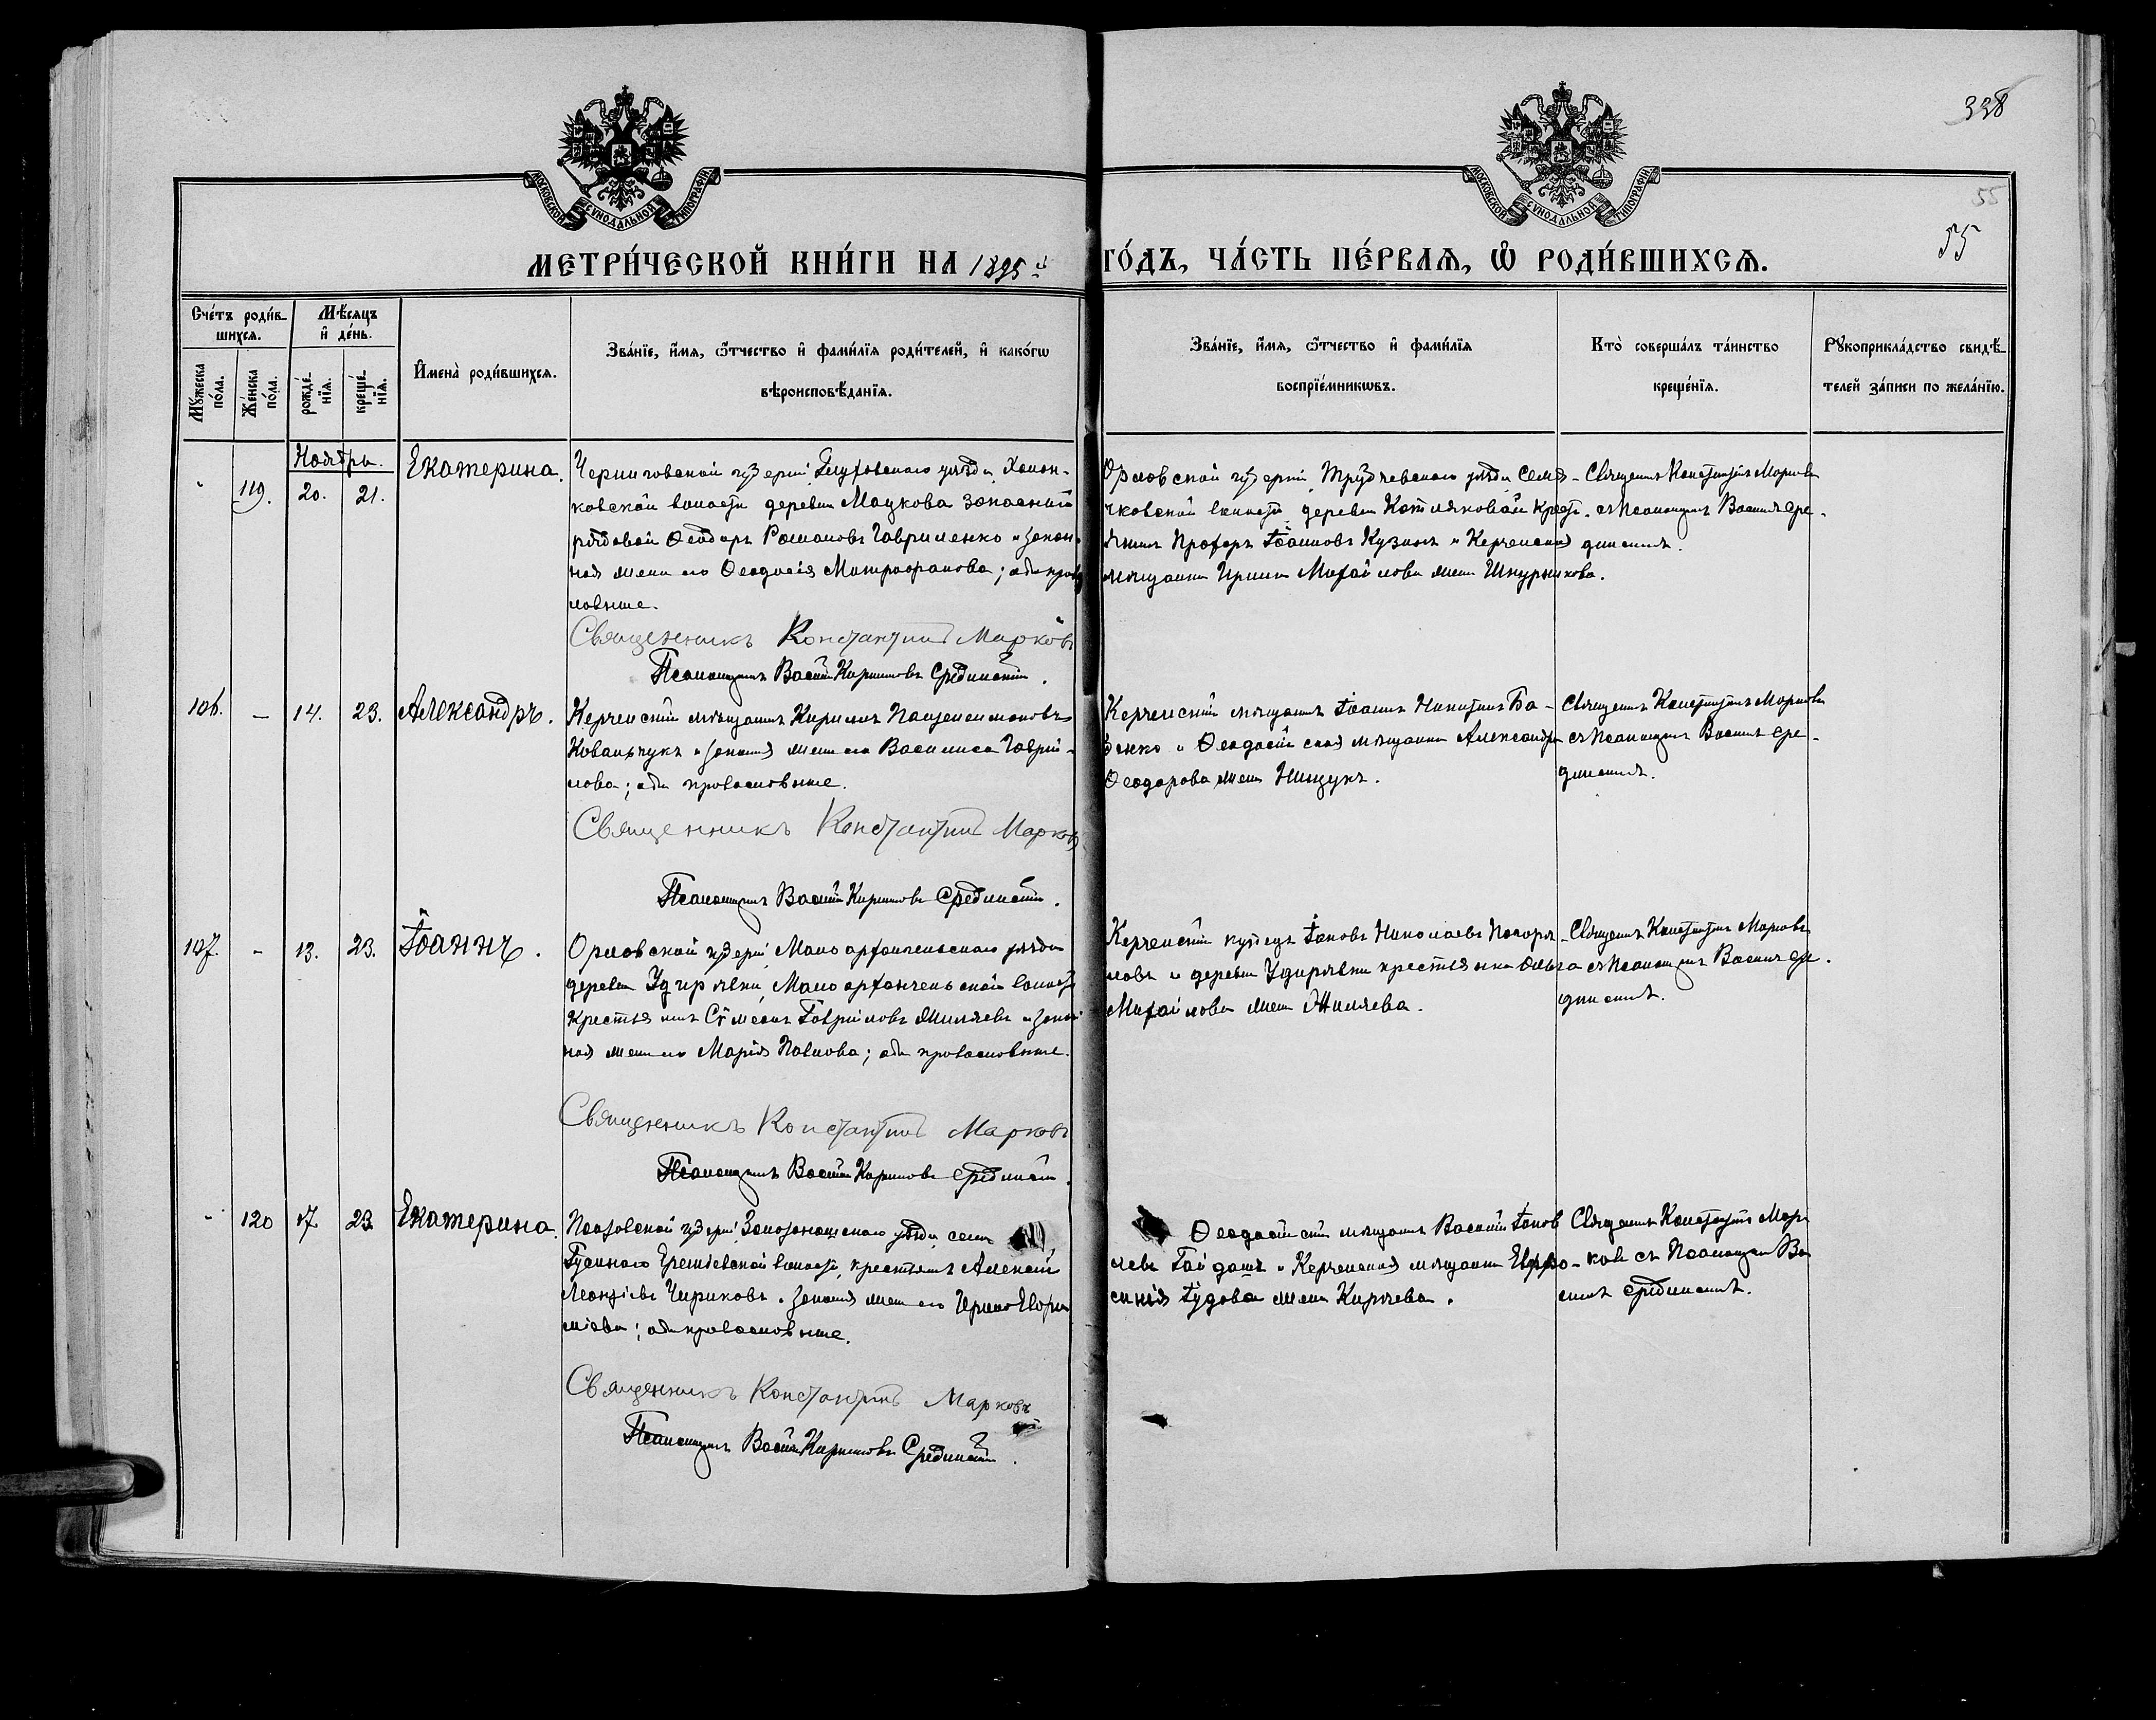 338
55
55
МОСКОВСКОЙ СУНОДАЛЬНОЙ ТИПОГРАФІИ
МОСКОВСКОЙ СУНОДАЛЬНОЙ ТИПОГРАФІИ
МЕТРИ́ЧЕСКОЙ КНИ́ГИ НА 1895 й ГО́ДЪ, ЧА́СТЬ ПЕ́РВАЯ, Ѡ РОДИ́ВШИХСЯ.
Сче́тъ роди́в-
шихся.
Мꙋ́жеска по́ла.
Же́нска по́ла.
Мѣ́сяцъ
и҆ де́нь.
рожде́-нїя.
креще́-нїя.
И҆мена̀ роди́вшихся.
Зва́нїе, и҆́мя, ѻ҆́тчество и҆ фами́лїя роди́телей, и҆ како́гѡ
вѣроисповѣ́данїя.
Зва́нїе, и҆́мя, ѻ҆́тчество и҆ фами́лїя
воспрїе́мникѡвъ.
Кто̀ соверша́лъ та́инство
креще́нїя.
Рꙋкоприкла́дство свидѣ́-
телей за́писи по жела́нїю.
Ноябрь.
119. 20. 21. Екатерина.
Черниговской губерніи, Глуховскаго уѣзда, Холоп-
ковской волости деревни Мацкова запасный
рядовой Ѳеодоръ Романовъ Гавриленко и закон-
ная жена его Ѳеодосія Митрофанова; оба право
славные.
Священникъ Константинъ Марковъ
Псаломщикъ Василій Кирилловъ Срединскій.
Орловской губерніи, Трубчевскаго уѣзда Семя-
чковской волости, деревни Котляковой крест-
янинъ Прохоръ Іоанновъ Кузинъ и Керченская
мѣщанка Ирина Михайлова жена Шкурникова.
Священникъ Константинъ Марковъ
съ Псаломщикомъ Василіемъ Сре-
динскимъ.
106. – 14. 23. Александръ.
Керченскій мѣщанинъ Кириллъ Пантелеимоновъ
Ковальчукъ и законная жена его Василиса Гаврі-
лова; оба православные.
Священникъ Константинъ Марковъ
Псаломщикъ Василій Кирилловъ Срединскій.
Керченскій мѣщанинъ Іоаннъ Никитинъ Ба-
бенко и Ѳеодосійская мѣщанка Александра
Ѳеодорова жена Нищукъ.
Священникъ Константинъ Марковъ
съ Псаломщикомъ Василіемъ Сре-
динскимъ.
107. – 13. 23. Іоаннъ.
Орловской губерніи, Малоархангельскаго уѣзда
деревни Удеревки, Малоархангельской волости
крестьянинъ Сѵмеонъ Гавріиловъ Жиляевъ и закон
ная жена его Марія Павлова; оба православные.
Священникъ Константинъ Марковъ
Псаломщикъ Василій Кирилловъ Срединскій.
Михайлова жена Жиляева.
Священникъ Константинъ Марковъ
съ Псаломщикомъ Василіемъ Сре-
динскимъ.
120 17. 23. Екатерина.
крестьянинъ Алексій
Леонтіевъ Чириковъ и законная жена его Ирина Евфи
міева; оба православные.
Священникъ Константинъ Марковъ
Псаломщикъ Василій Кирилловъ Срединскій.
Ѳеодосійскій мѣщанинъ Василій Іаков
левъ Гайдашъ и Керченская мѣщанка Евфро-
синія Іудова жена Киряева.
Священникъ Константинъ Мар
ковъ съ Псаломщикомъ Ва
силіемъ Срединскимъ.